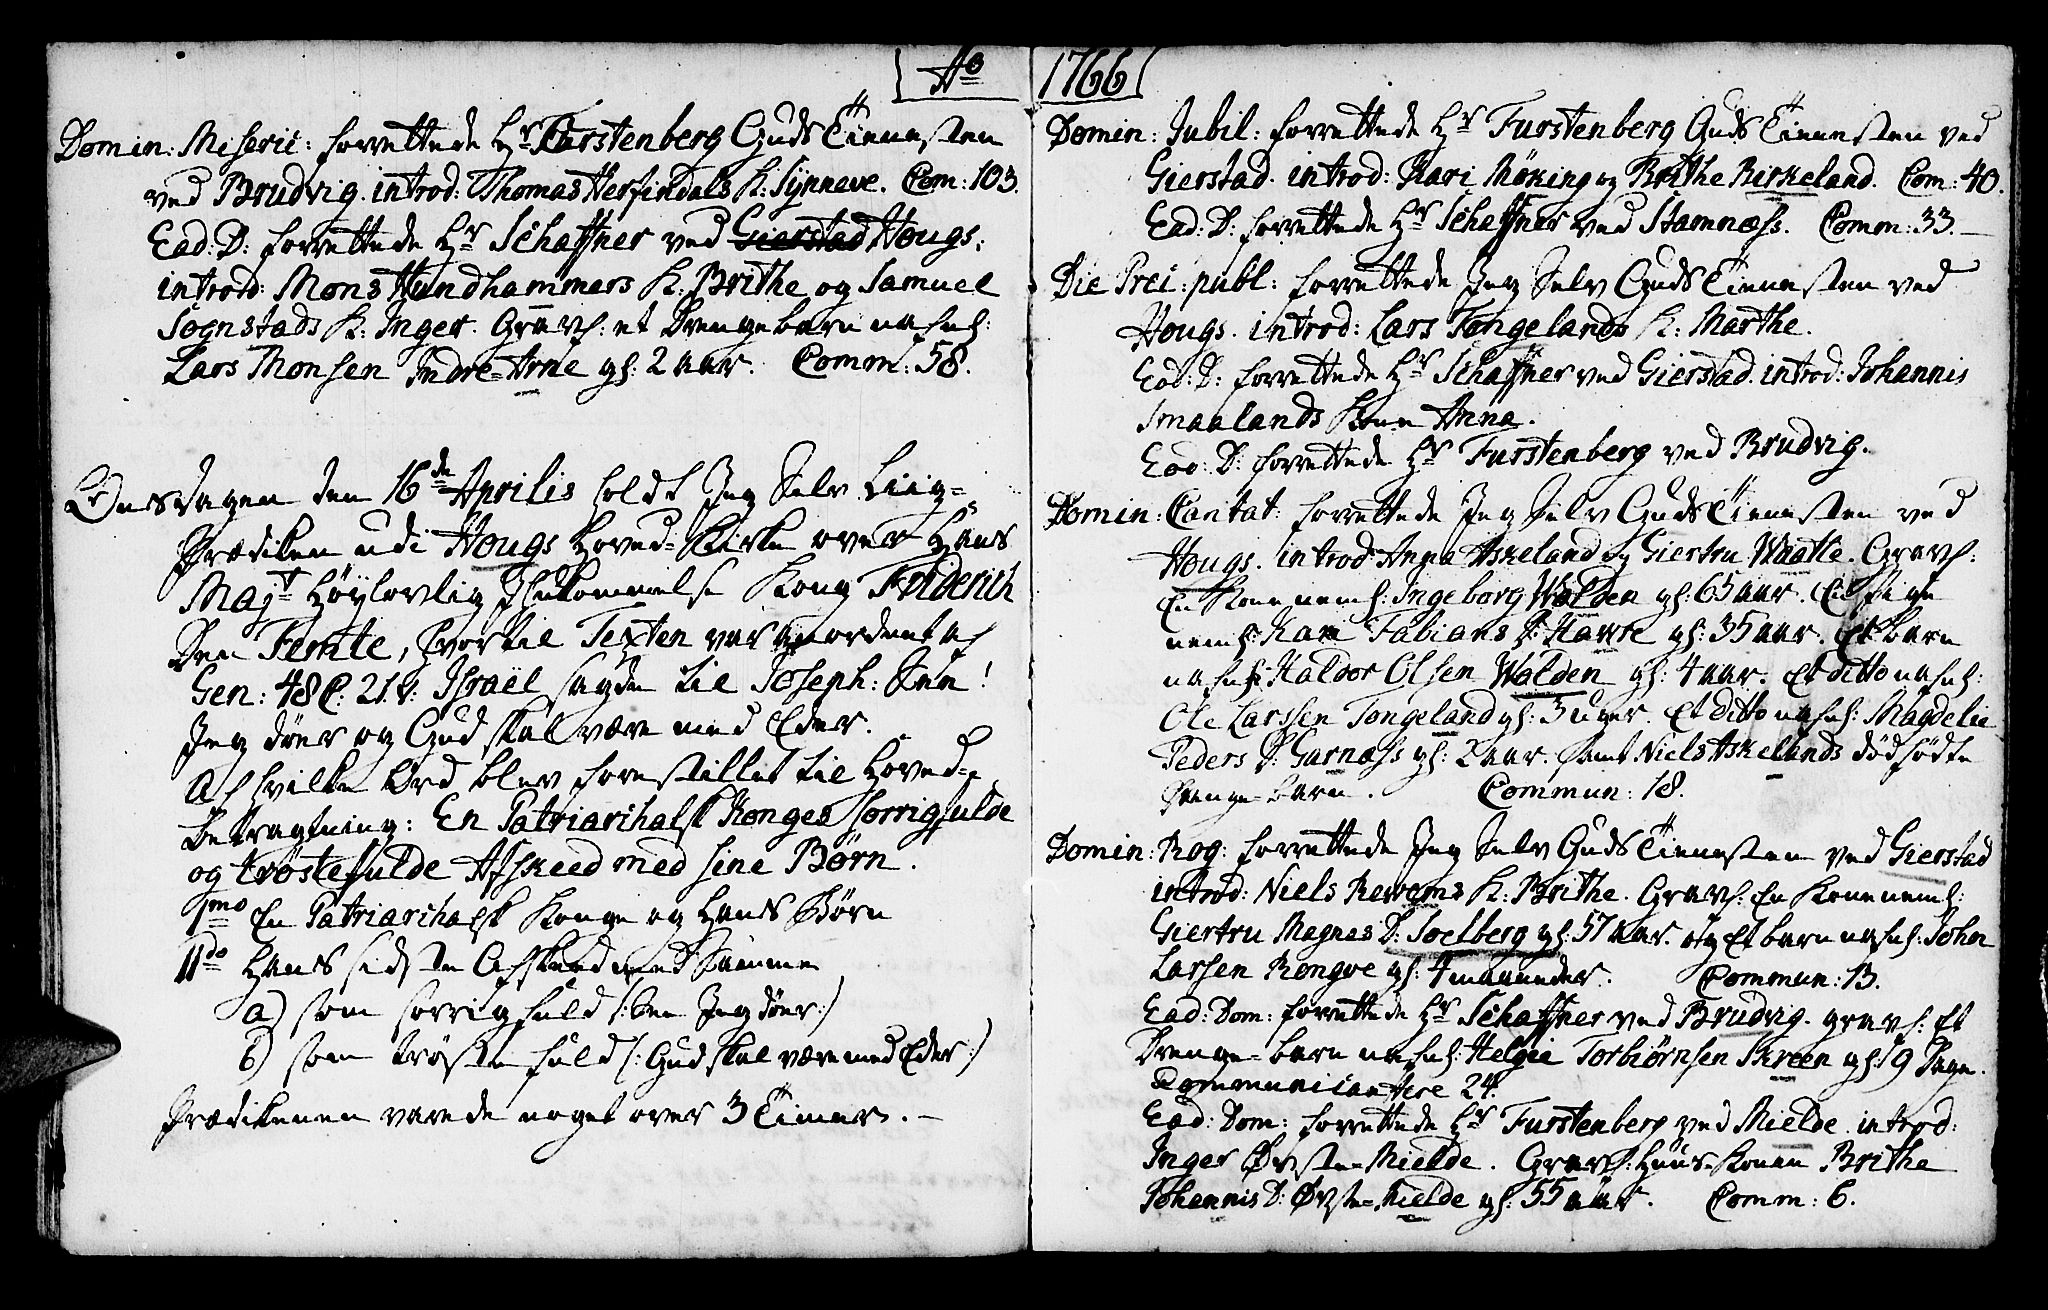 Ao 1766
Domin: Miseric: forrettede Hr Furstenberg Guds Tienesten
ved Brudvig. introd: Thomas Herfindals K: Synneve. Com: 103.
Ead: D: forrettede Hr Schaffner ved Gierstad Hougs.
introd: Mons Hundhammers K: Brithe og Samuel
Sognstads K: Inger. Gravf: et Drengebarn nafnl:
Lars Monsen Indre-Arne gl: 2 aar. Comm: 58.
Onsdagen den 16de Aprilis holdt Jeg Selv Liig-
Prædiken udi Hougs Hoved-Kirke over Hans
Majt Høylovlig Ihukommelse Kong Friderich
Den Femte, hvortil Texten var anordnet af
Gen: 48 C: 21 v: Israël sagde til Joseph: See!
Jeg døer og Gud skal være med Eder.
Af hvilke Ord blev forestillet til Hoved-
Betragtning: En Patriarchalsk Konges Sorrigfulde
og trøstefulde Afskeed med sine Børn.
1mo En Patriarchalsk Konge og Hans Børn
IIdo Hans sidste Afskeed med Samme
a) som sorrigfuld /: See Jeg døer :/
b) som trøstefuld /: Gud skal være med Eder :/
Prædikenen varede noget over 3 Timer. –
Domin: Jubil: forrettede Hr Furstenberg Guds Tienesten ved
Gierstad. introd: Kari Møking og Brithe Birkeland. Com: 40.
Ead: D: forrettede Hr Schaffner ved Stamnæss. Comm: 33. –
Die Prec: publ: forrettede Jeg Selv Guds Tienesten ved
Hougs. introd: Lars Tongelands K: Marthe.
Eod: D: forrettede Hr Schaffner ved Gierstad. introd: Johannis
Smaalands Kone Anna.
Eod: D: forrettede Hr Furstenberg ved Brudvig.
Domin: Cantat: forrettede Jeg Selv Guds Tienesten ved
Hougs. introd: Anna Askeland og Giertru Waatle. Gravf:
En Kone neml: Ingeborg Walden gl: 65 aar. En Pige
neml: Kari Fabians D: Hawre gl: 35 aar. Et barn
nafnl: Haldor Olsen Walden gl: 4 aar. Et ditto nafnl:
Ole Larssen Tongeland gl: 3 uger. Et ditto nafnl: Magdelie
Peders D: Garnæss gl: 2 aar. samt Niels Askelands dødfødte
Drenge-barn. Commun: 18.
Domin: Rog: forrettede Jeg Selv Guds Tienesten ved Gierstad
introd: Niels Rewems K: Brithe. Gravf: En Kone neml:
Giertru Magnes D: Soelberg gl: 57 aar. og Et barn nafnl: John
Larsen Rongve gl: 4 maaneder. Commun: 13.
Ead: Dom: forrettede Hr Schaffner ved Brudvig. gravf: Et
Drenge-barn nafnl: Helgie Torbiørnsen Skreen gl: 9 Dage.
Communicantere 24.
Ead: Dom: forrettede Hr Furstenberg ved Mielde. introd:
Inger Øvste-Mielde. Gravf: Huus-Konen Brithe
Johannis D: Øvste-Mielde gl: 55 aar. Comm: 6.